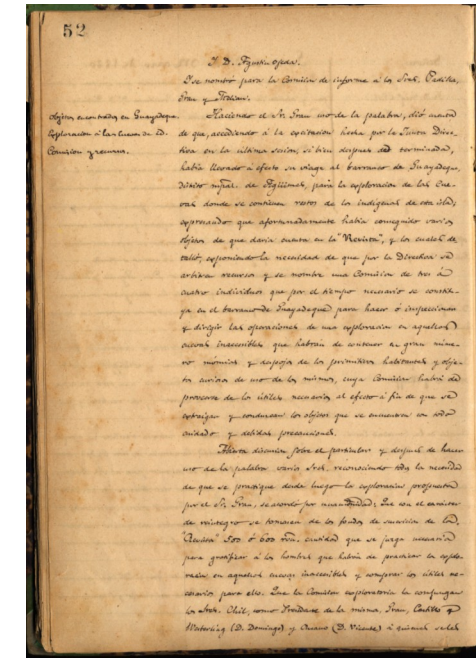 52
Y D. Agustin Ojeda.
Y se nombró para la Comision de informe á los Sres. Padilla,
Grau y
Objetos encontrados en Guayadeque.
Exploracion á las cuevas de id.
Comision y recursos.
Haciendo el Sr. Grau uso de la palabra, dió cuenta
de que, accediendo á la excitacion hecha por la Junta Direc-
tiva en la última sesion, si bien despues de terminada,
habia llevado á efecto su viage al barranco de Guayadeque,
Distrito mpal. de Agüimes, para la exploracion de las Cue-
vas donde se contienen restos de los indígenas de esta isla;
expresando que afortunadamente habia conseguido varios
objetos de que daria cuenta en la "Revista", y los cuales de-
talló, exponiendo la necesidad de que por la Directiva se
arbitren recursos y se nombre una Comision de tres á
cuatro individuos que por el tiempo necesario se constitu-
ya en el barranco de Guayadeque para hacer é inspeccionar
y dirigir las operaciones de una exploracion en aquellas
cuevas inaccesibles que habrán de contener en gran núme-
ro momias y despojos de los primitivos habitantes y obje-
tos curiosos de uso de los mismos, cuya Comision habrá de
proveerse de los útiles necesarios al efecto á fin de que se
extraigan y conduzcan los objetos que se encuentren con todo
cuidado y debidas precauciones.
Abierta discusion sobre el particular y despues de hacer
uso de la palabra varios Sres. reconociendo todos la necesidad
de que se practique desde luego la exploracion propuesta
por el Sr. Grau, se acordó por unanimidad: Que con el carácter
de reintegro se tomasen de los fondos de suscricion de la
"Revista" 500 ó 600 rvn. cantidad que se juzga necesaria
para gratificar á los hombres que habrán de practicar la explo-
racion en aquellas cuevas inaccesibles y comprar los útiles ne-
cesarios para ello. Que la Comision exploratoria la compongan
los Sres. Chil, como Presidente de la misma, Grau, Castillo y
Westerling (D. Domingo) y (D. Vicente) á quienes